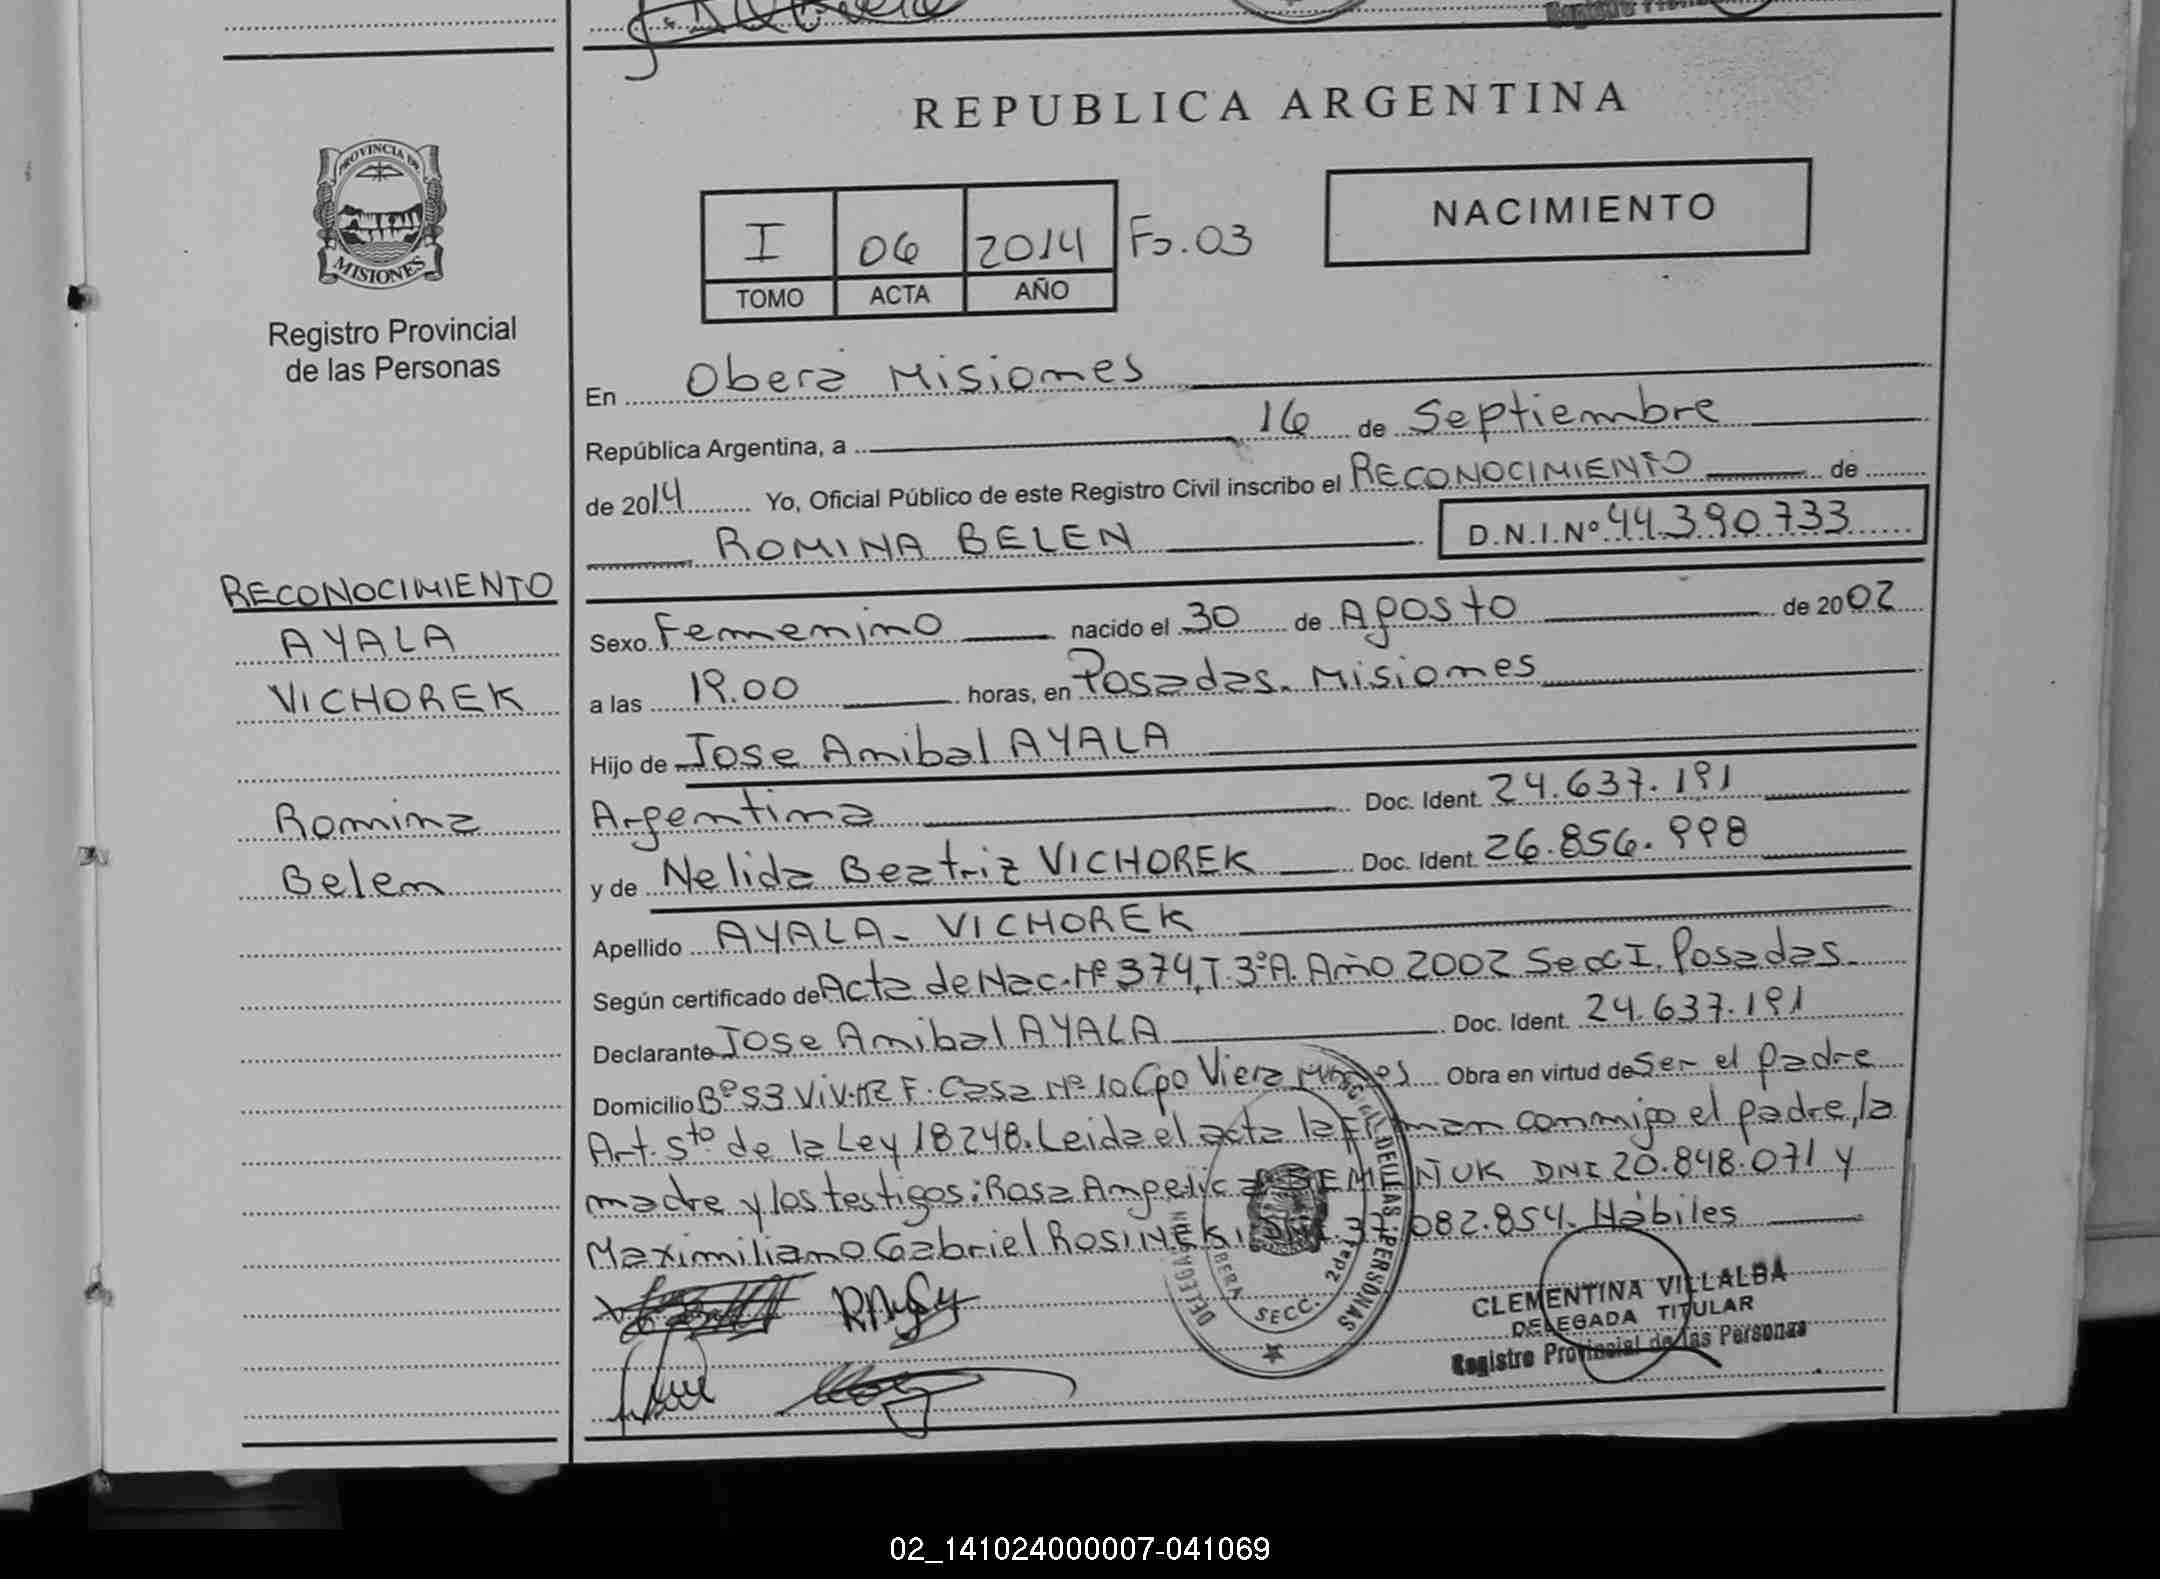 REPUBLICA ARGENTINA
PROVINCIA DE
MISIONES
Registro Provincial
de las Personas
I 06 2014 Fo.03
TOMO ACTA AÑO
NACIMIENTO
En Oberá Misiones
República Argentina, a 16 de Septiembre
de 2014 Yo, Oficial Público de este Registro Civil inscribo el RECONOCIMIENTO de
ROMINA BELEN D.N.I.Nº 44.390.733
RECONOCIMIENTO
AYALA
VICHOREK
Romina
Belen
Sexo Femenino nacido el 30 de Agosto de 2002
a las 19.00 horas, en Posadas. Misiones
Hijo de Jose Anibal AYALA
Argentina Doc. Ident. 24.637.191
y de Nelida Beatriz VICHOREK Doc. Ident. 26.856.998
Apellido AYALA - VICHOREK
Según certificado de Acta de Nac. Nº 374, T. 3ºA. Año 2002 Secc I. Posadas.
Declarante Jose Anibal AYALA Doc. Ident. 24.637.191
Domicilio Bº 53 Viv. Mz F. Casa Nº 10 Cpo Viera Obra en virtud de Ser el padre
Art. 5to de la Ley 18248. Leida el acta la firman conmigo el padre, la
madre y los testigos: Rosa Angelica DNI 20.848.071 y
Maximiliano Gabriel ROSINSKI DNI. 37.082.854. Hábiles
OBERA SECC. 2da
DELEGACION
DE LAS PERSONAS
CLEMENTINA VILLALBA
DELEGADA TITULAR
Registro Provincial de las Personas
02_141024000007-041069